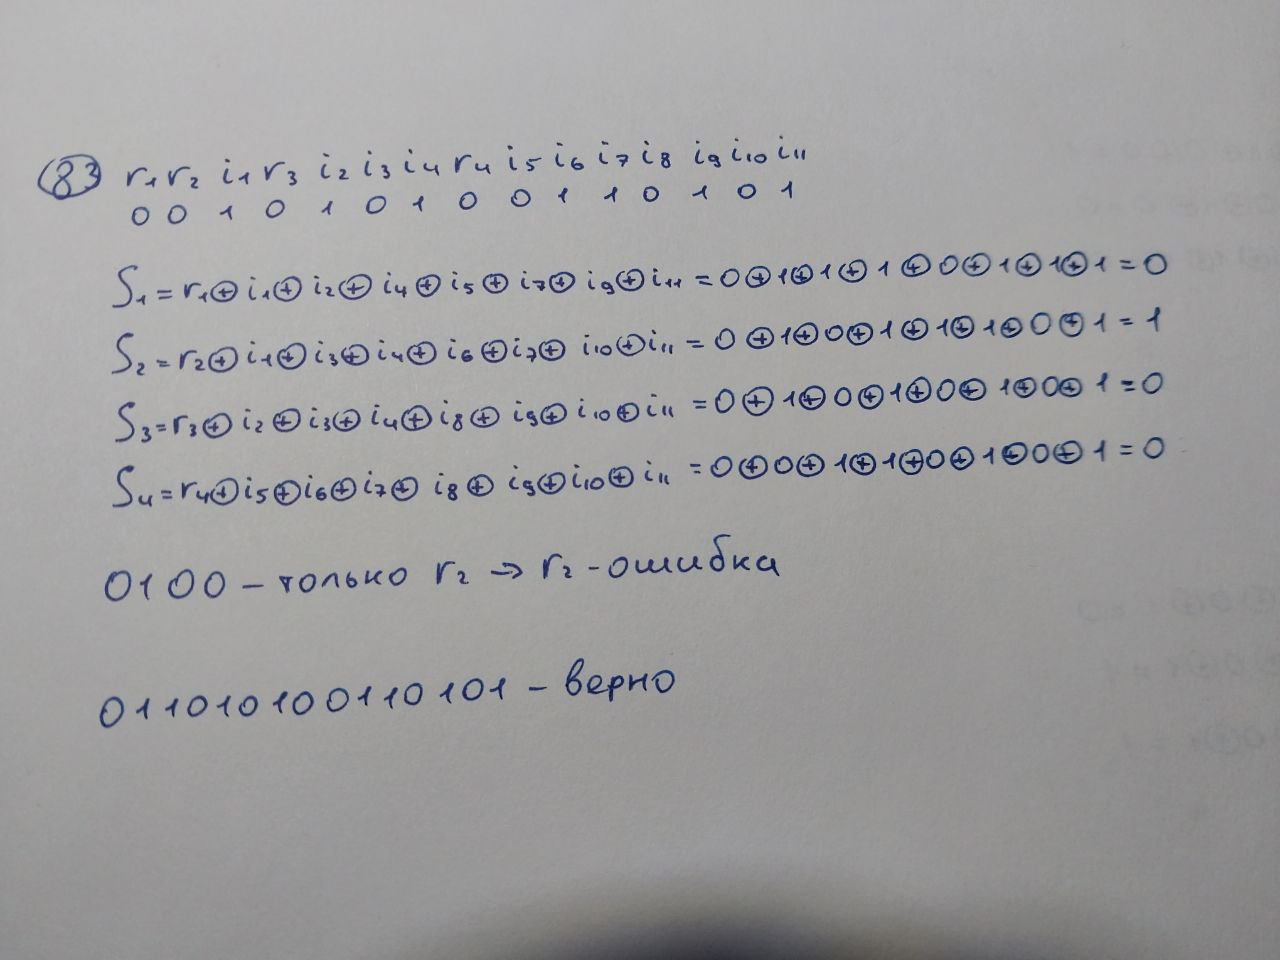 83 r₁ r₂ i₁ r₃ i₂ i₃ i₄ r₄ i₅ i₆ i₇ i₈ i₉ i₁₀ i₁₁
0 0 1 0 1 0 1 0 0 1 1 0 1 0 1
S₁ = r₁ ⊕ i₁ ⊕ i₂ ⊕ i₄ ⊕ i₅ ⊕ i₇ ⊕ i₉ ⊕ i₁₁ = 0 ⊕ 1 ⊕ 1 ⊕ 1 ⊕ 0 ⊕ 1 ⊕ 1 ⊕ 1 = 0
S₂ = r₂ ⊕ i₁ ⊕ i₃ ⊕ i₄ ⊕ i₆ ⊕ i₇ ⊕ i₁₀ ⊕ i₁₁ = 0 ⊕ 1 ⊕ 0 ⊕ 1 ⊕ 1 ⊕ 1 ⊕ 0 ⊕ 1 = 1
S₃ = r₃ ⊕ i₂ ⊕ i₃ ⊕ i₄ ⊕ i₈ ⊕ i₉ ⊕ i₁₀ ⊕ i₁₁ = 0 ⊕ 1 ⊕ 0 ⊕ 1 ⊕ 0 ⊕ 1 ⊕ 0 ⊕ 1 = 0
S₄ = r₄ ⊕ i₅ ⊕ i₆ ⊕ i₇ ⊕ i₈ ⊕ i₉ ⊕ i₁₀ ⊕ i₁₁ = 0 ⊕ 0 ⊕ 1 ⊕ 1 ⊕ 0 ⊕ 1 ⊕ 0 ⊕ 1 = 0
0100 – только r₂ → r₂ - ошибка
011010100110101 – верно